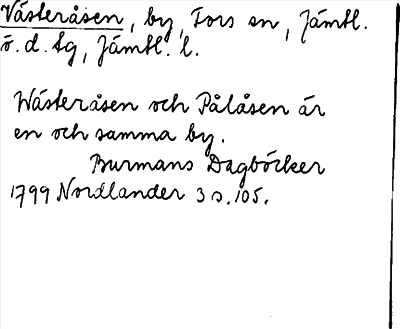 Västeråsen, by, Fors sn, Jämtl.
ö. d. tg, Jämtl. l.
Wästeråsen och Pålåsen är
en och samma by.
Burmans Dagböcker
1799 Nordlander 3 s. 105.